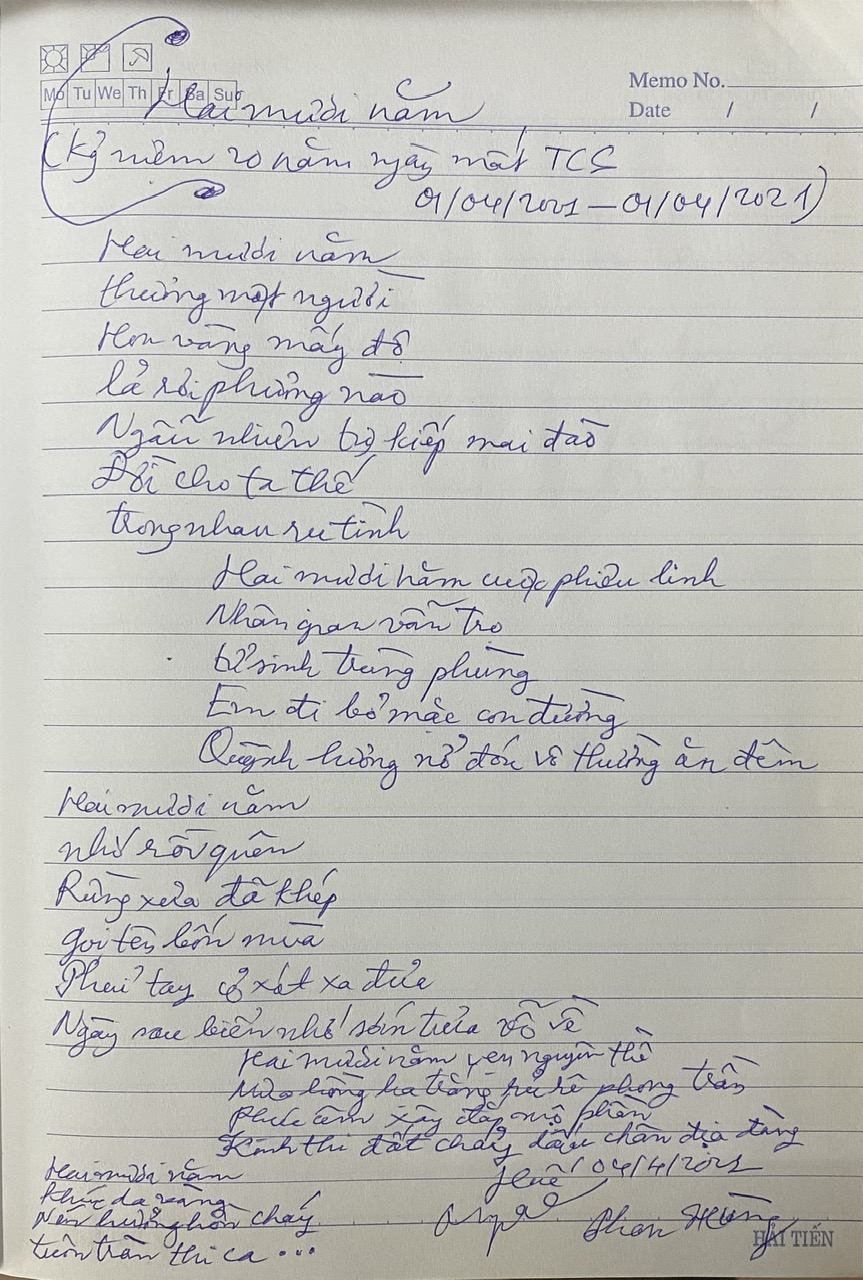 Mo Tu We Th Fr Sa Su
Memo No.
Date / /
Hai mươi năm
(Kỷ niệm 20 năm ngày mất TCS
01/04/2001 — 01/04/2021)
Hai mươi năm
thường một người
Hon vàng mấy độ
lả rơi phường nào
Ngẫu nhiên trọ kiếp mai đào
Đời cho ta thế
trong nhau ru tình
Hai mươi năm cuộc phiêu linh
Nhân gian vẫn trọ
tử sinh trùng phùng
Em đi bỏ mặc con đường
Quỳnh hương nở đón vô thường ăn đêm
Hai mươi năm
nhớ rồi quên
Rừng xưa đã khép
gọi tên bốn mùa
Phai tay xót xa đưa
Ngày sau biển nhớ sớn tưa vỗ về
Hai mươi năm vẹn nguyên thề
Mưa hồng hạ trắng rủ rê phong trần
Phúc âm xây đắp mộ phần
Kinh thi đất chảy dấu chân địa đàng
Hai mươi năm
khúc da vàng
Nén hương hồn cháy
tuôn tràn thi ca ...
Huế 04/4/2021
Phan Hùng
HẢI TIẾN